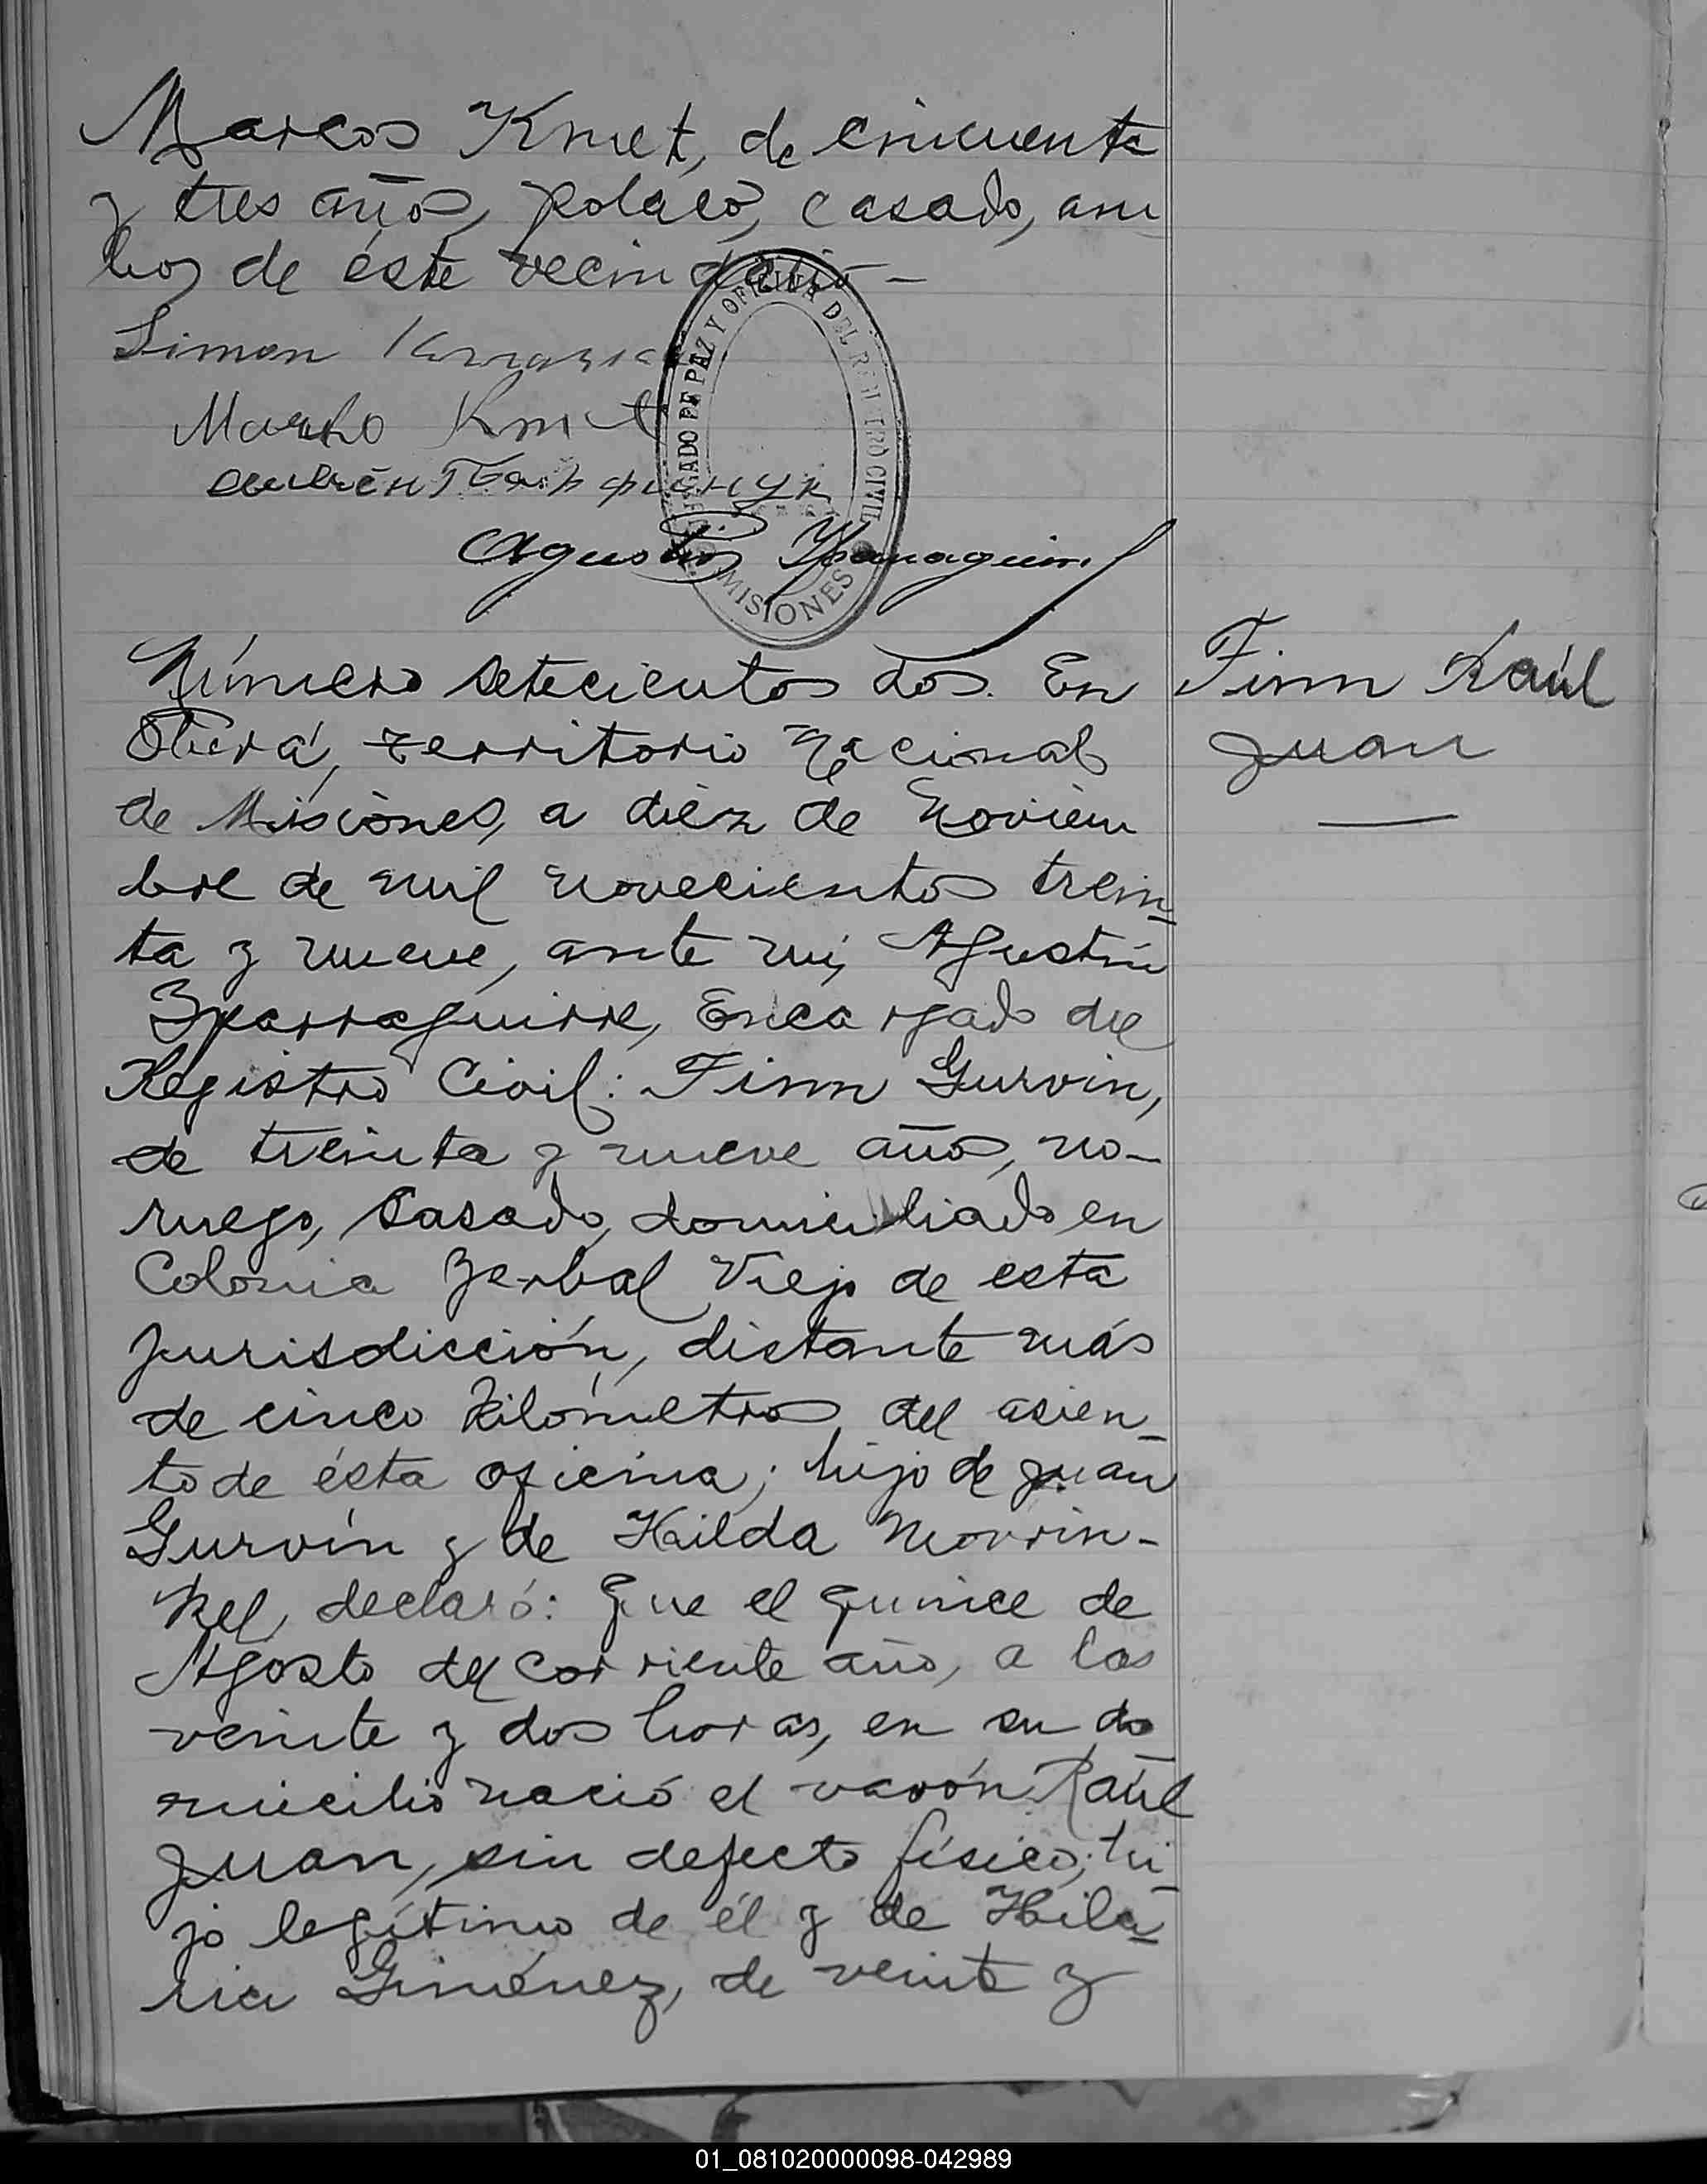 Marcos Kmet, de cincuenta
y tres años, polaco, casado, am
bos de éste vecindario –
Simon
Marko Kmet
JUZGADO DE PAZ Y OFICINA DEL REGISTRO CIVIL
MISIONES
Agustin Yparraguirre
Número setecientos dos. En
Oberá, territorio Nacional
de Misiones, a diéz de Noviem
bre de mil novecientos trein_
ta y nueve, ante mí, Agustín
Yparraguirre, Encargado del
Registro Civil: Finn Gurvin,
de treinta y nueve años, no_
ruego, casado, domiciliado en
Colonia Yerbal Viejo de esta
jurisdicción, distante más
de cinco kilómetros del asien_
to de ésta oficina; hijo de Juan
Gurvin y de Hailda
declaró: Que el quince de
Agosto del corriente año, a las
veinte y dos horas, en su do_
micilio nació el varón Raúl
Juan, sin defecto físico; hi_
jo legítimo de él y de Hila_
ria Giménez, de veinte y
Finn Raúl
Juan
01_081020000098-042989